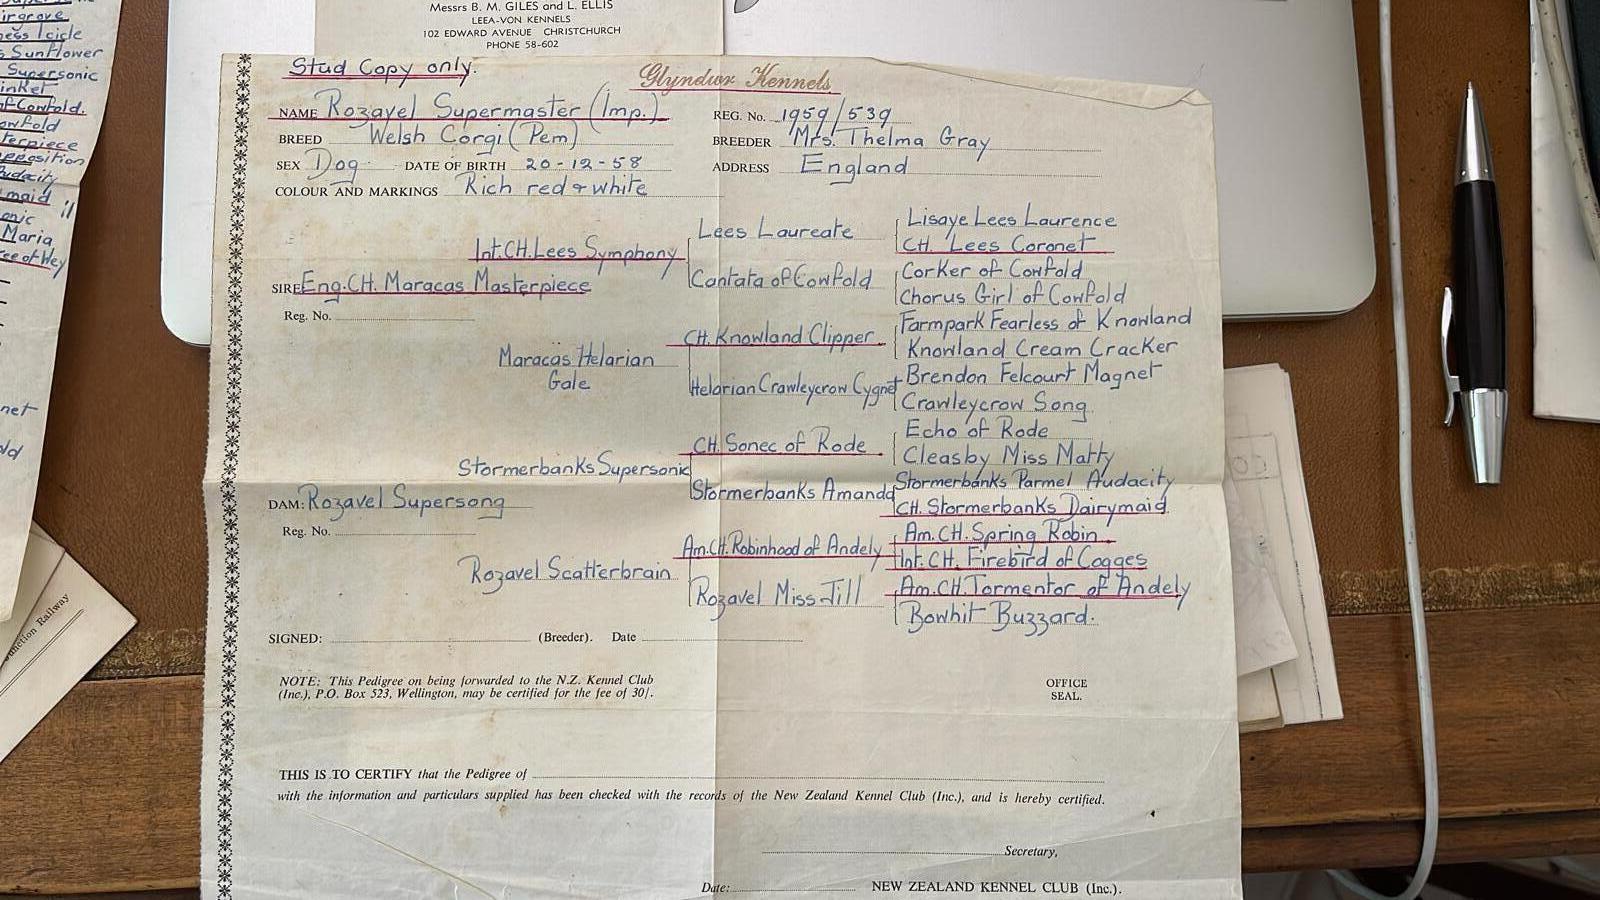 Messrs B. M. GILES and L. ELLIS
LEEA-VON KENNELS
102 EDWARD AVENUE CHRISTCHURCH
PHONE 58-602
Icicle
Sunflower
Supersonic
of Cowfold.
Maria
Stud Copy only.
Glyndwr Kennels
NAME Rozavel Supermaster (Imp.)
REG. No. 1959/539
BREED Welsh Corgi (Pem)
BREEDER Mrs. Thelma Gray
SEX Dog DATE OF BIRTH 20-12-58
ADDRESS England
COLOUR AND MARKINGS Rich red & white
Lisaye Lees Laurence
Lees Laureate
CH. Lees Coronet
Int. CH. Lees Symphony
Corker of Cowfold
Cantata of Cowfold
Chorus Girl of Cowfold
SIRE Eng. CH. Maracas Masterpiece
Reg. No.
Farmpark Fearless of Knowland
CH. Knowland Clipper
Knowland Cream Cracker
Maracas Helarian
Gale
Brendon Felcourt Magnet
Helarian Crawleycrow Cygnet
Crawleycrow Song
Echo of Rode
CH. Sonec of Rode
Cleasby Miss Matty
Stormerbanks Supersonic
Stormerbanks Parmel Audacity
Stormerbanks Amanda
CH. Stormerbanks Dairymaid
DAM: Rozavel Supersong
Reg. No.
Am. CH. Spring Robin
Am. CH. Robinhood of Andely
Int. CH. Firebird of Cogges
Rozavel Scatterbrain
Am. CH. Tormentor of Andely
Rozavel Miss Jill
Bowhit Buzzard.
SIGNED: (Breeder). Date
NOTE: This Pedigree on being forwarded to the N.Z. Kennel Club
(Inc.), P.O. Box 523, Wellington, may be certified for the fee of 30/-.
OFFICE
SEAL.
THIS IS TO CERTIFY that the Pedigree of
with the information and particulars supplied has been checked with the records of the New Zealand Kennel Club (Inc.), and is hereby certified.
Secretary,
Date: NEW ZEALAND KENNEL CLUB (Inc.).
Railway